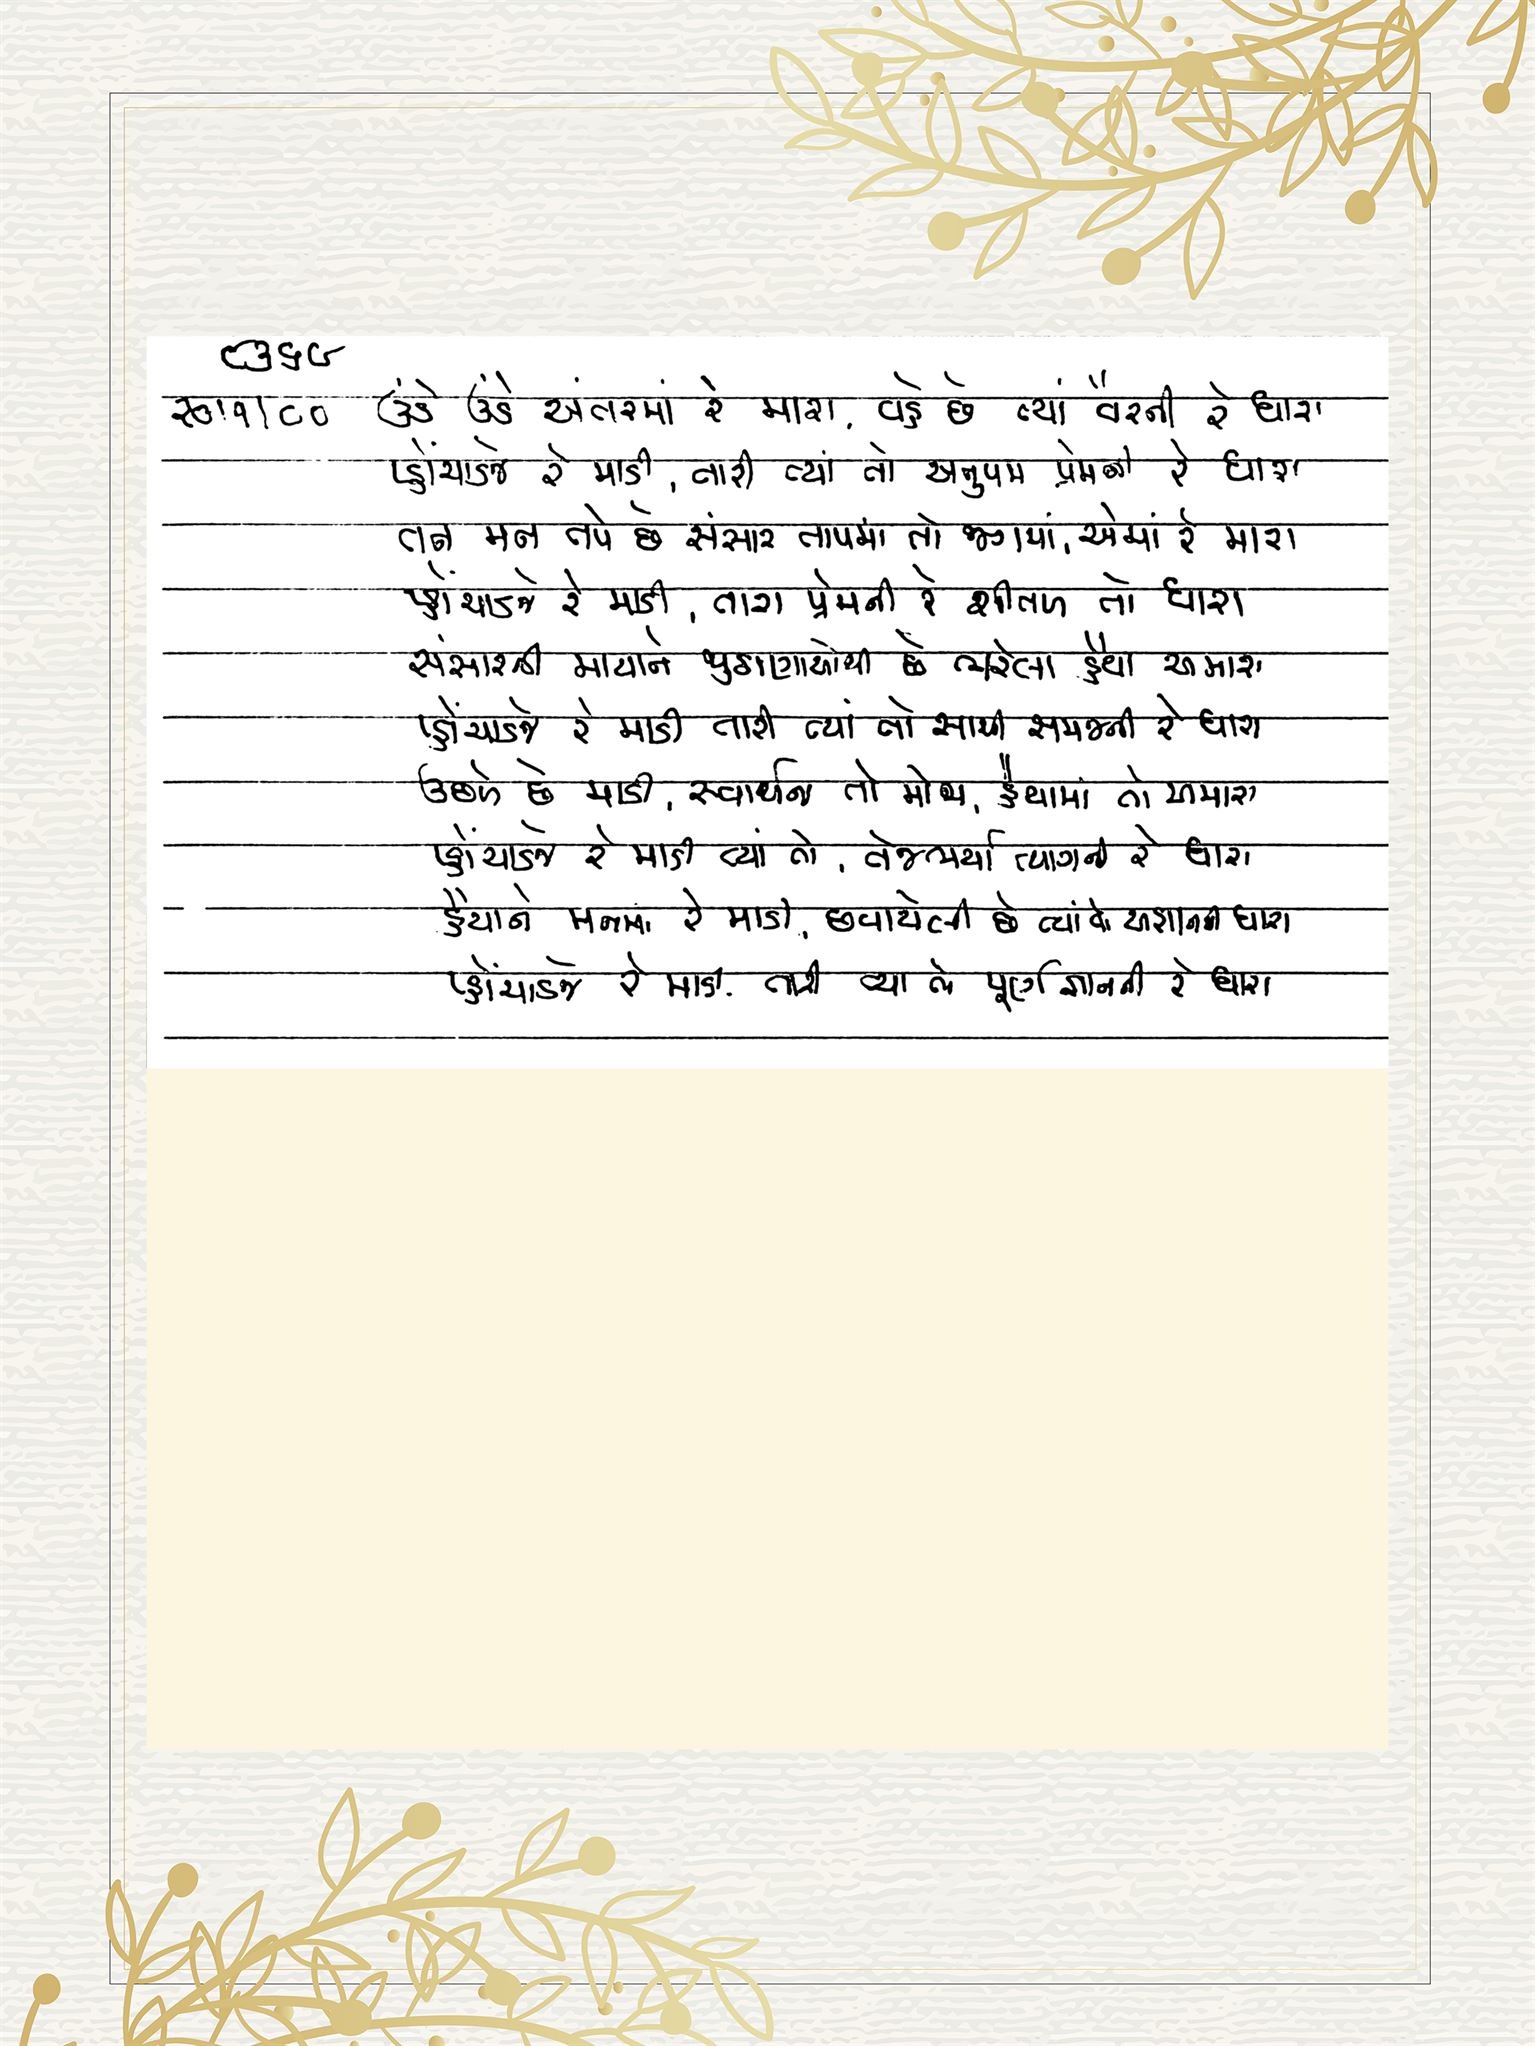 ઊંડે ઊંડે અંતરમાં રે મારા, વહે છે ત્યાં વૈરની રે ધારા
પ્હોંચાડજે રે માડી, તારી ત્યાં તો અનુપમ પ્રેમની રે ધારા
તન મન તપે છે સંસાર તાપમાં તો જગમાં, એમાં રે મારા
પ્હોંચાડજે રે માડી, તારા પ્રેમની રે શીતળ તો ધારા
સંસારની માયાને મુંઝારાઓથી છે ભરેલા હૈયા અમારા
પ્હોંચાડજે રે માડી તારી ત્યાં તો સાચી સમજની રે ધારા
ઉછળે છે માડી, સ્વાર્થના તો મોજા, હૈયામાં તો અમારા
પ્હોંચાડજે રે માડી ત્યાં તો, તેજભર્યા ત્યાગની રે ધારા
હૈયાને મનમાં રે માડી, છવાયેલી છે ત્યાં અજ્ઞાનની ધારા
પ્હોંચાડજે રે માડી. તારી ત્યા તો પૂર્ણ જ્ઞાનની રે ધારા